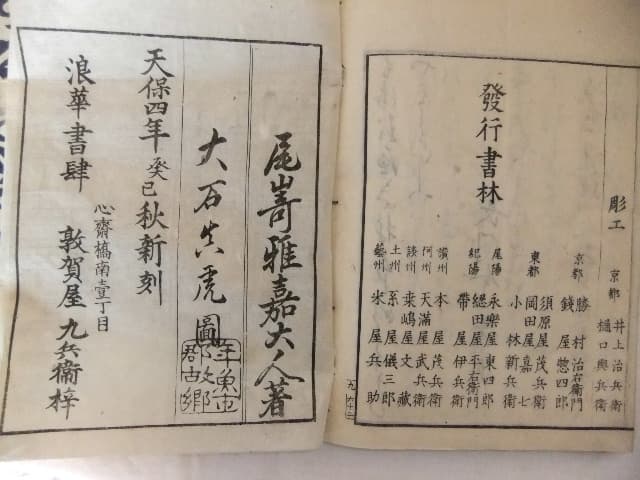 彫工 京都 井上治兵衛
樋口與兵衛
發行書林
京都 勝村治右衛門
錢屋惣四郎
東都 須原屋茂兵衛
岡田屋嘉七
小林新兵衛
尾陽 永樂屋東四郎
紀陽 綛田屋平右衛門
帶屋伊兵衛
讃州 本屋茂兵衛
阿州 天滿屋武兵衛
淡州 桒嶋屋文藏
土州 糸屋儀三郎
藝州 米屋兵助
尾嵜雅嘉大人著
大石真虎圖
天保四年癸巳秋新刻
浪華書肆 心齋橋南壹丁目 敦賀屋九兵衛梓